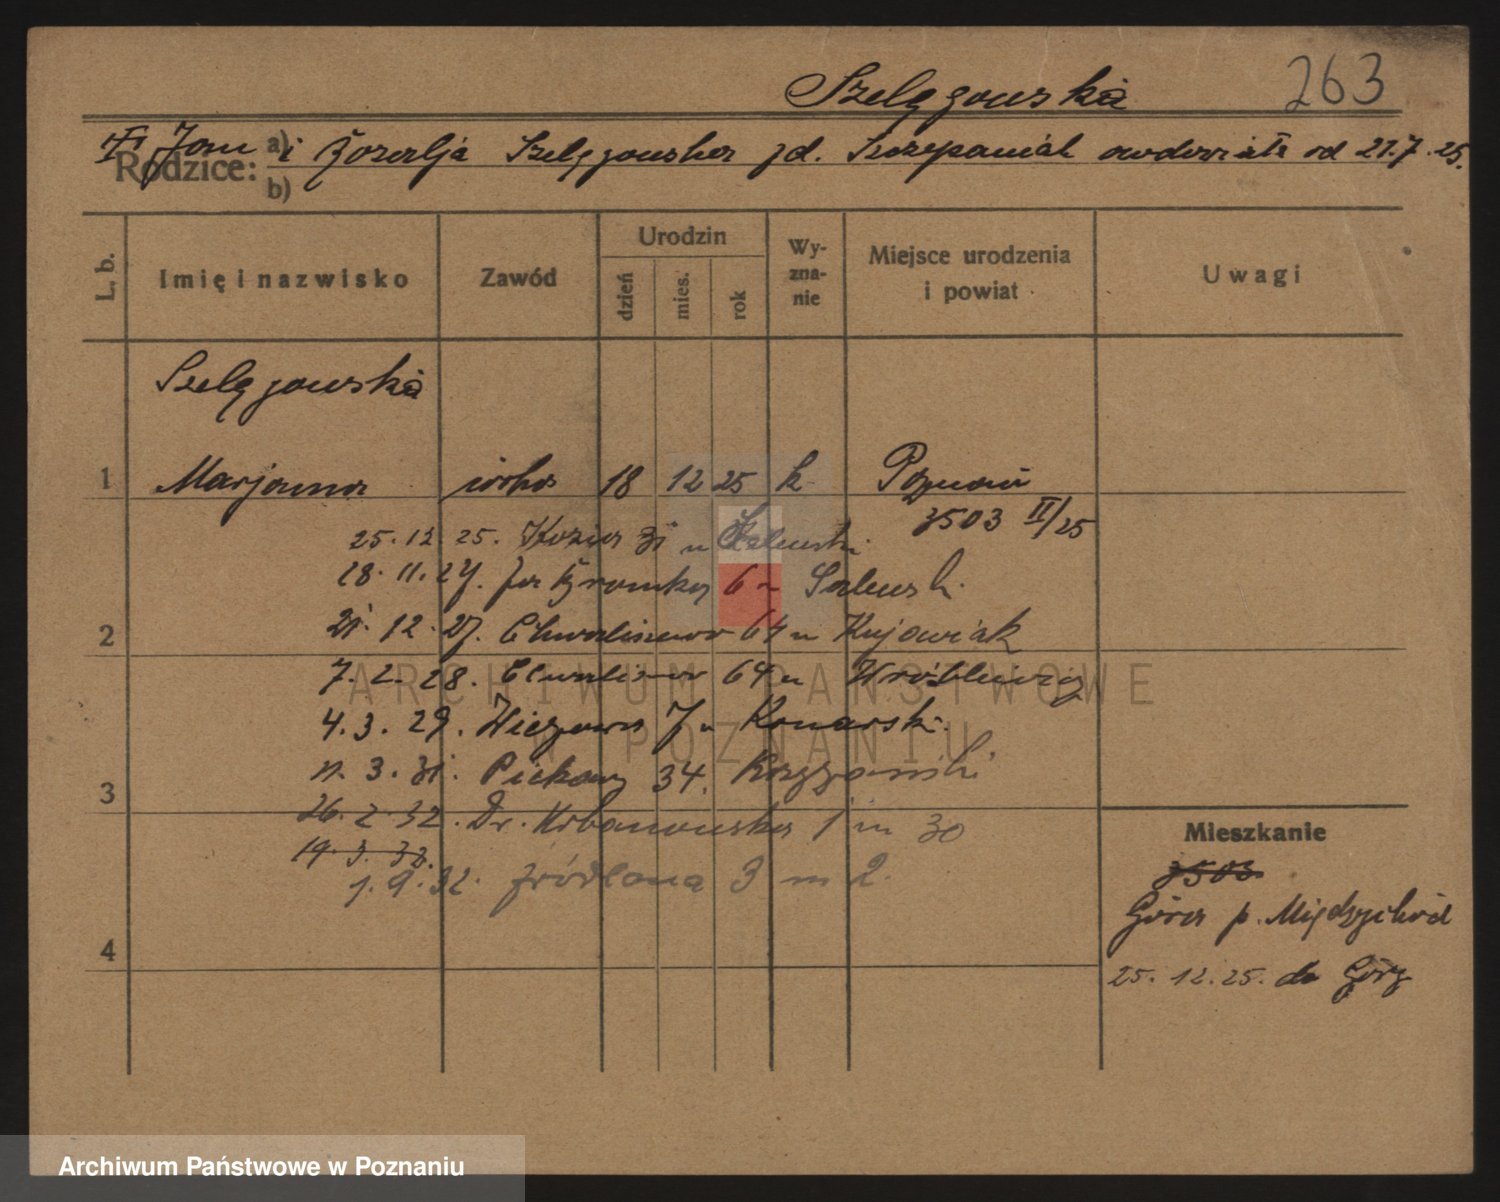 Szelągowska 263
Jan i Rozalja Szelągowska zd. Szczepaniak owdowiała od 21.7.25.
Rodzice: a)
b)
L. b. Imię i nazwisko Zawód Urodzin dzień mies. rok Wy-zna-nie Miejsce urodzenia i powiat Uwagi
Szelągowska
1 Marjanna córka 18 12 25 k. Poznań
3503 II/25
25. 12. 25. Kozia 31 u Zalewski
18. 11. 27. 6 u
2 21. 12. 27. Chwaliszewo 64 u Kujawiak
7. 2. 28. Chwaliszewo 64 u Wróblewicz
4. 3. 29. 7 u Konarski.
3 11. 3. 31. Piekary 34.
26. 2. 32. Dr. 1 m 30
19. 3. 32.
1. 9. 32. Źródlana 3 m 2.
4
Mieszkanie
3503
Góra p. Międzychód
25. 12. 25. do Góry
ARCHIWUM PAŃSTWOWE
W POZNANIU
Archiwum Państwowe w Poznaniu